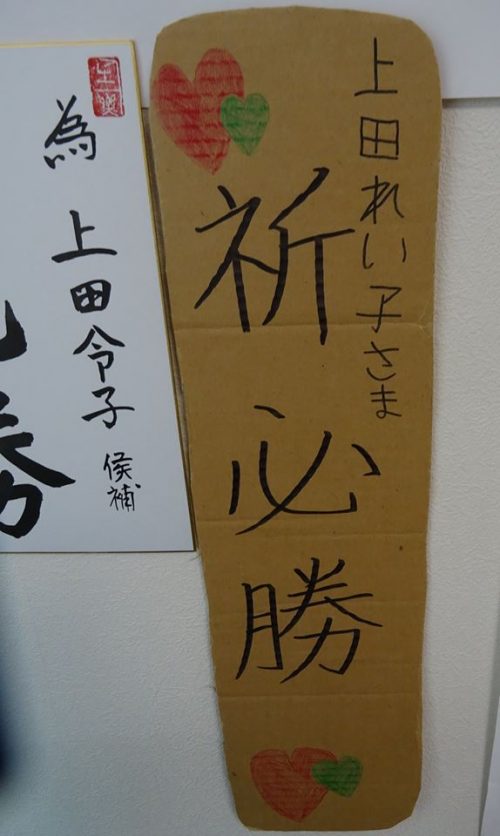 上田れい子さま
祈必勝
為 上田令子 候補
必勝